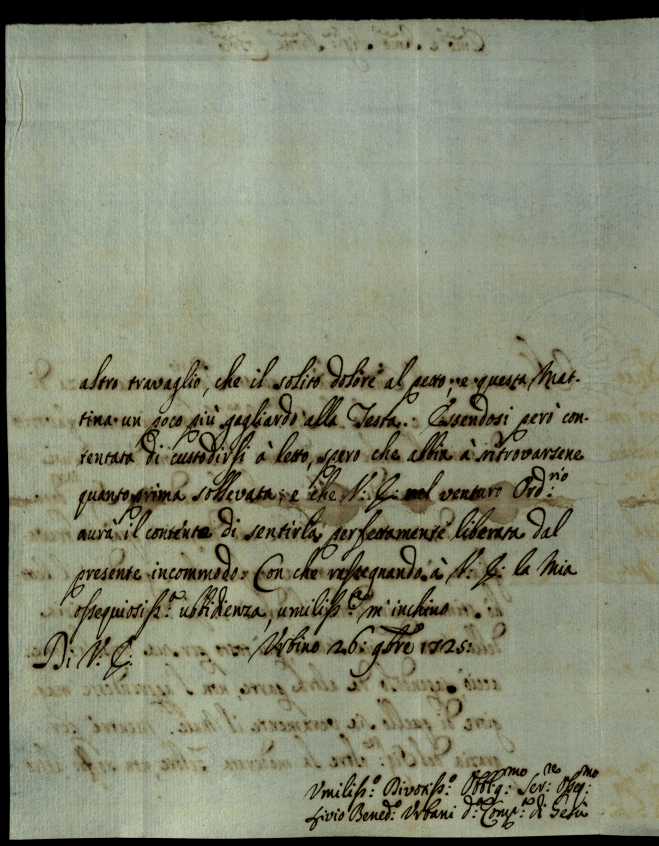 altro travaglio, che il solito dolore al petto; e questa Mat-
tina un poco più gagliardo alla Testa. Essendosi però con-
tentata di custodirsi à letto, spero che abbia à ritrovarsene
quanto prima sollevata; e che V. E. nel venturo Ord:rio
aurà il contento di sentirla perfettamente liberata dal
presente incommodo. Con che rassegnando à V. E. la Mia
ossequiosiss:a ubbidienza, umiliss:te m'inchino
Di V. E. Urbino 26: 9bre 1725:
Umiliss:o Divotiss:o Obblig:mo Ser:re Osseq:mo
Livio Bened:o Urbani d:a Comp:a di Gesù